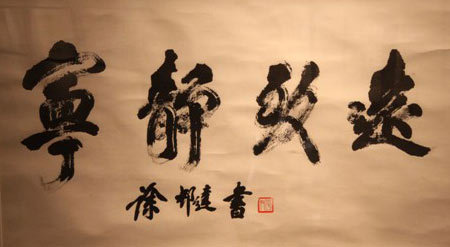 寧靜致遠
徐邦達書